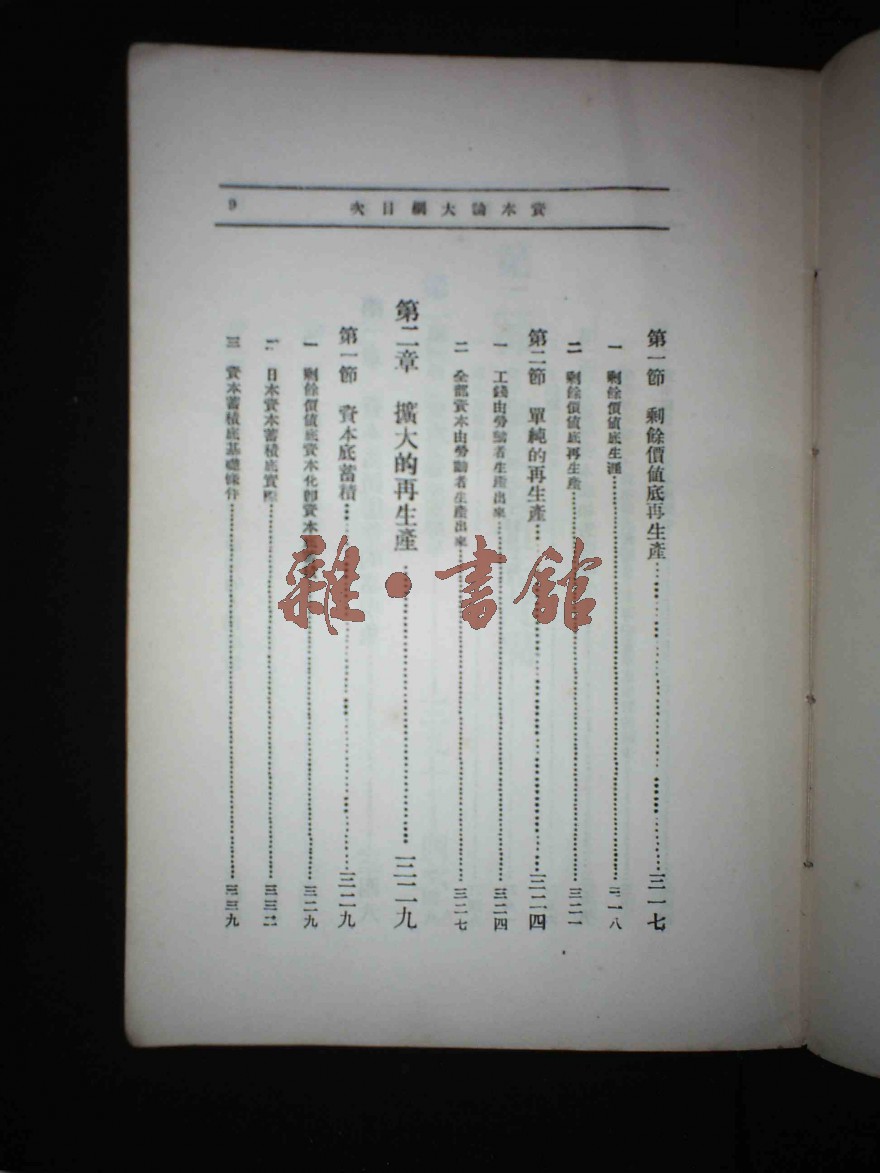 資本論大綱目次
9
第一節 剩餘價値底再生產……三一七
一 剩餘價値底生涯……三一八
二 剩餘價値底再生產……三二一
第二節 單純的再生產……三二四
一 工錢由勞動者生產出來……三二四
二 全部資本由勞動者生產出來……三二七
第二章 擴大的再生產……三二九
第一節 資本底蓄積……三二九
一 剩餘價値底資本化卽資本……三二九
二 日本資本蓄積底實際……三三二
三 資本蓄積底基礎條件……三三九
雜·書館